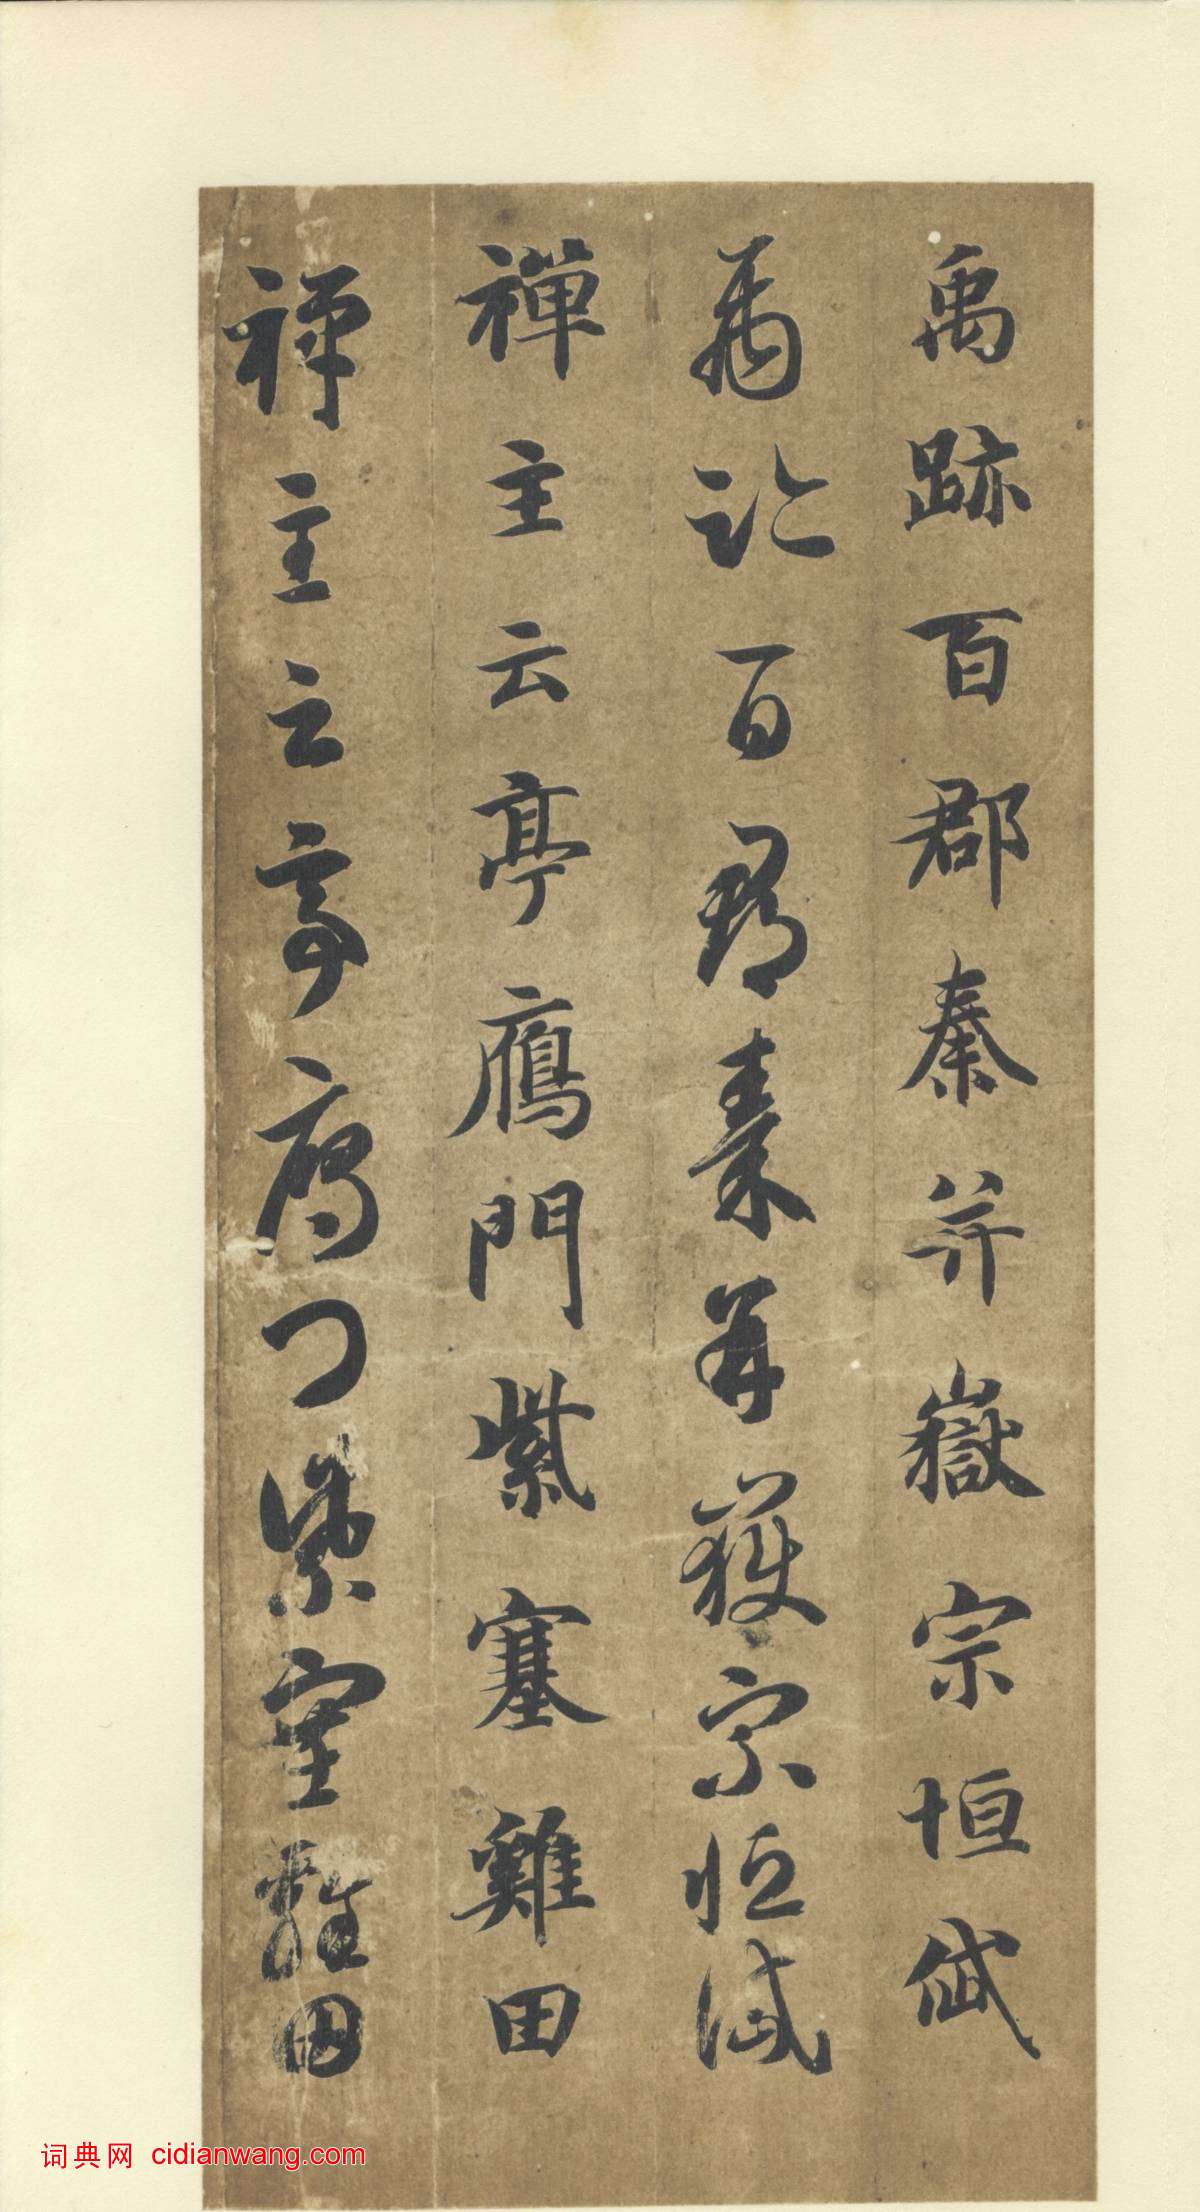 禹跡百郡秦并嶽宗恒岱
禹跡百郡秦并嶽宗恒岱
禪主云亭鴈門紫塞雞田
禪主云亭鴈門紫塞雞田
词典网 cidianwang.com